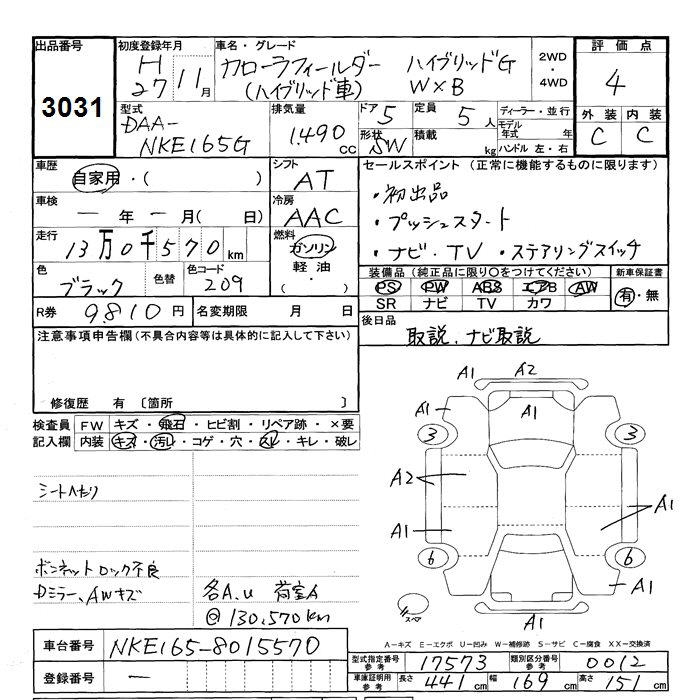 出品番号 初度登録年月 車名・グレード 評価点
3031 H27 11月 カローラフィールダー ハイブリッドG 2WD・4WD 4
(ハイブリッド車) W×B
型式 排気量 ドア 5 定員 5人 ディーラー・並行 外装 内装
DAA-NKE165G 1.490cc 形状 SW 積載 kg モデル年式 年 C C
ハンドル 左・右
車歴 自家用・( ) シフト AT セールスポイント (正常に機能するものに限ります)
車検 ー年ー月( 日) 冷房 AAC ・初出品
・プッシュスタート
走行 13万0千570km 燃料 ガソリン 軽油・( ) ・ナビ・TV ・ステアリングスイッチ
色 ブラック 色替 色コード 209 装備品(純正品に限り○をつけてください) 新車保証書
PS PW ABS エアB AW 有・無
SR ナビ TV カワ
R券 9.810円 名変期限 月 日 後日品
取説、ナビ取説
注意事項申告欄(不具合内容等は具体的に記入して下さい)
修復歴 有 〔箇所 〕
検査員記入欄 FW キズ・飛石・ヒビ割・リペア跡・×要
内装 キズ・汚レ・コゲ・穴・スレ・キレ・破レ
シートヘタリ
ボンネットロック不良
Dミラー、AWキズ 各A.U 荷室A
@130,570km
A1 A2
A1 A1
3 3
A2
A1 A1
6 6
A1
スペア
A1
A-キズ E-エクボ U-凹み W-補修跡 S-サビ C-腐食 XX-交換済
車台番号 NKE165-8015570
型式指定番号 参考 17573 類別区分番号 参考 0012
登録番号 ー 車庫証明用 参考 長さ 441cm 幅 169cm 高さ 151cm